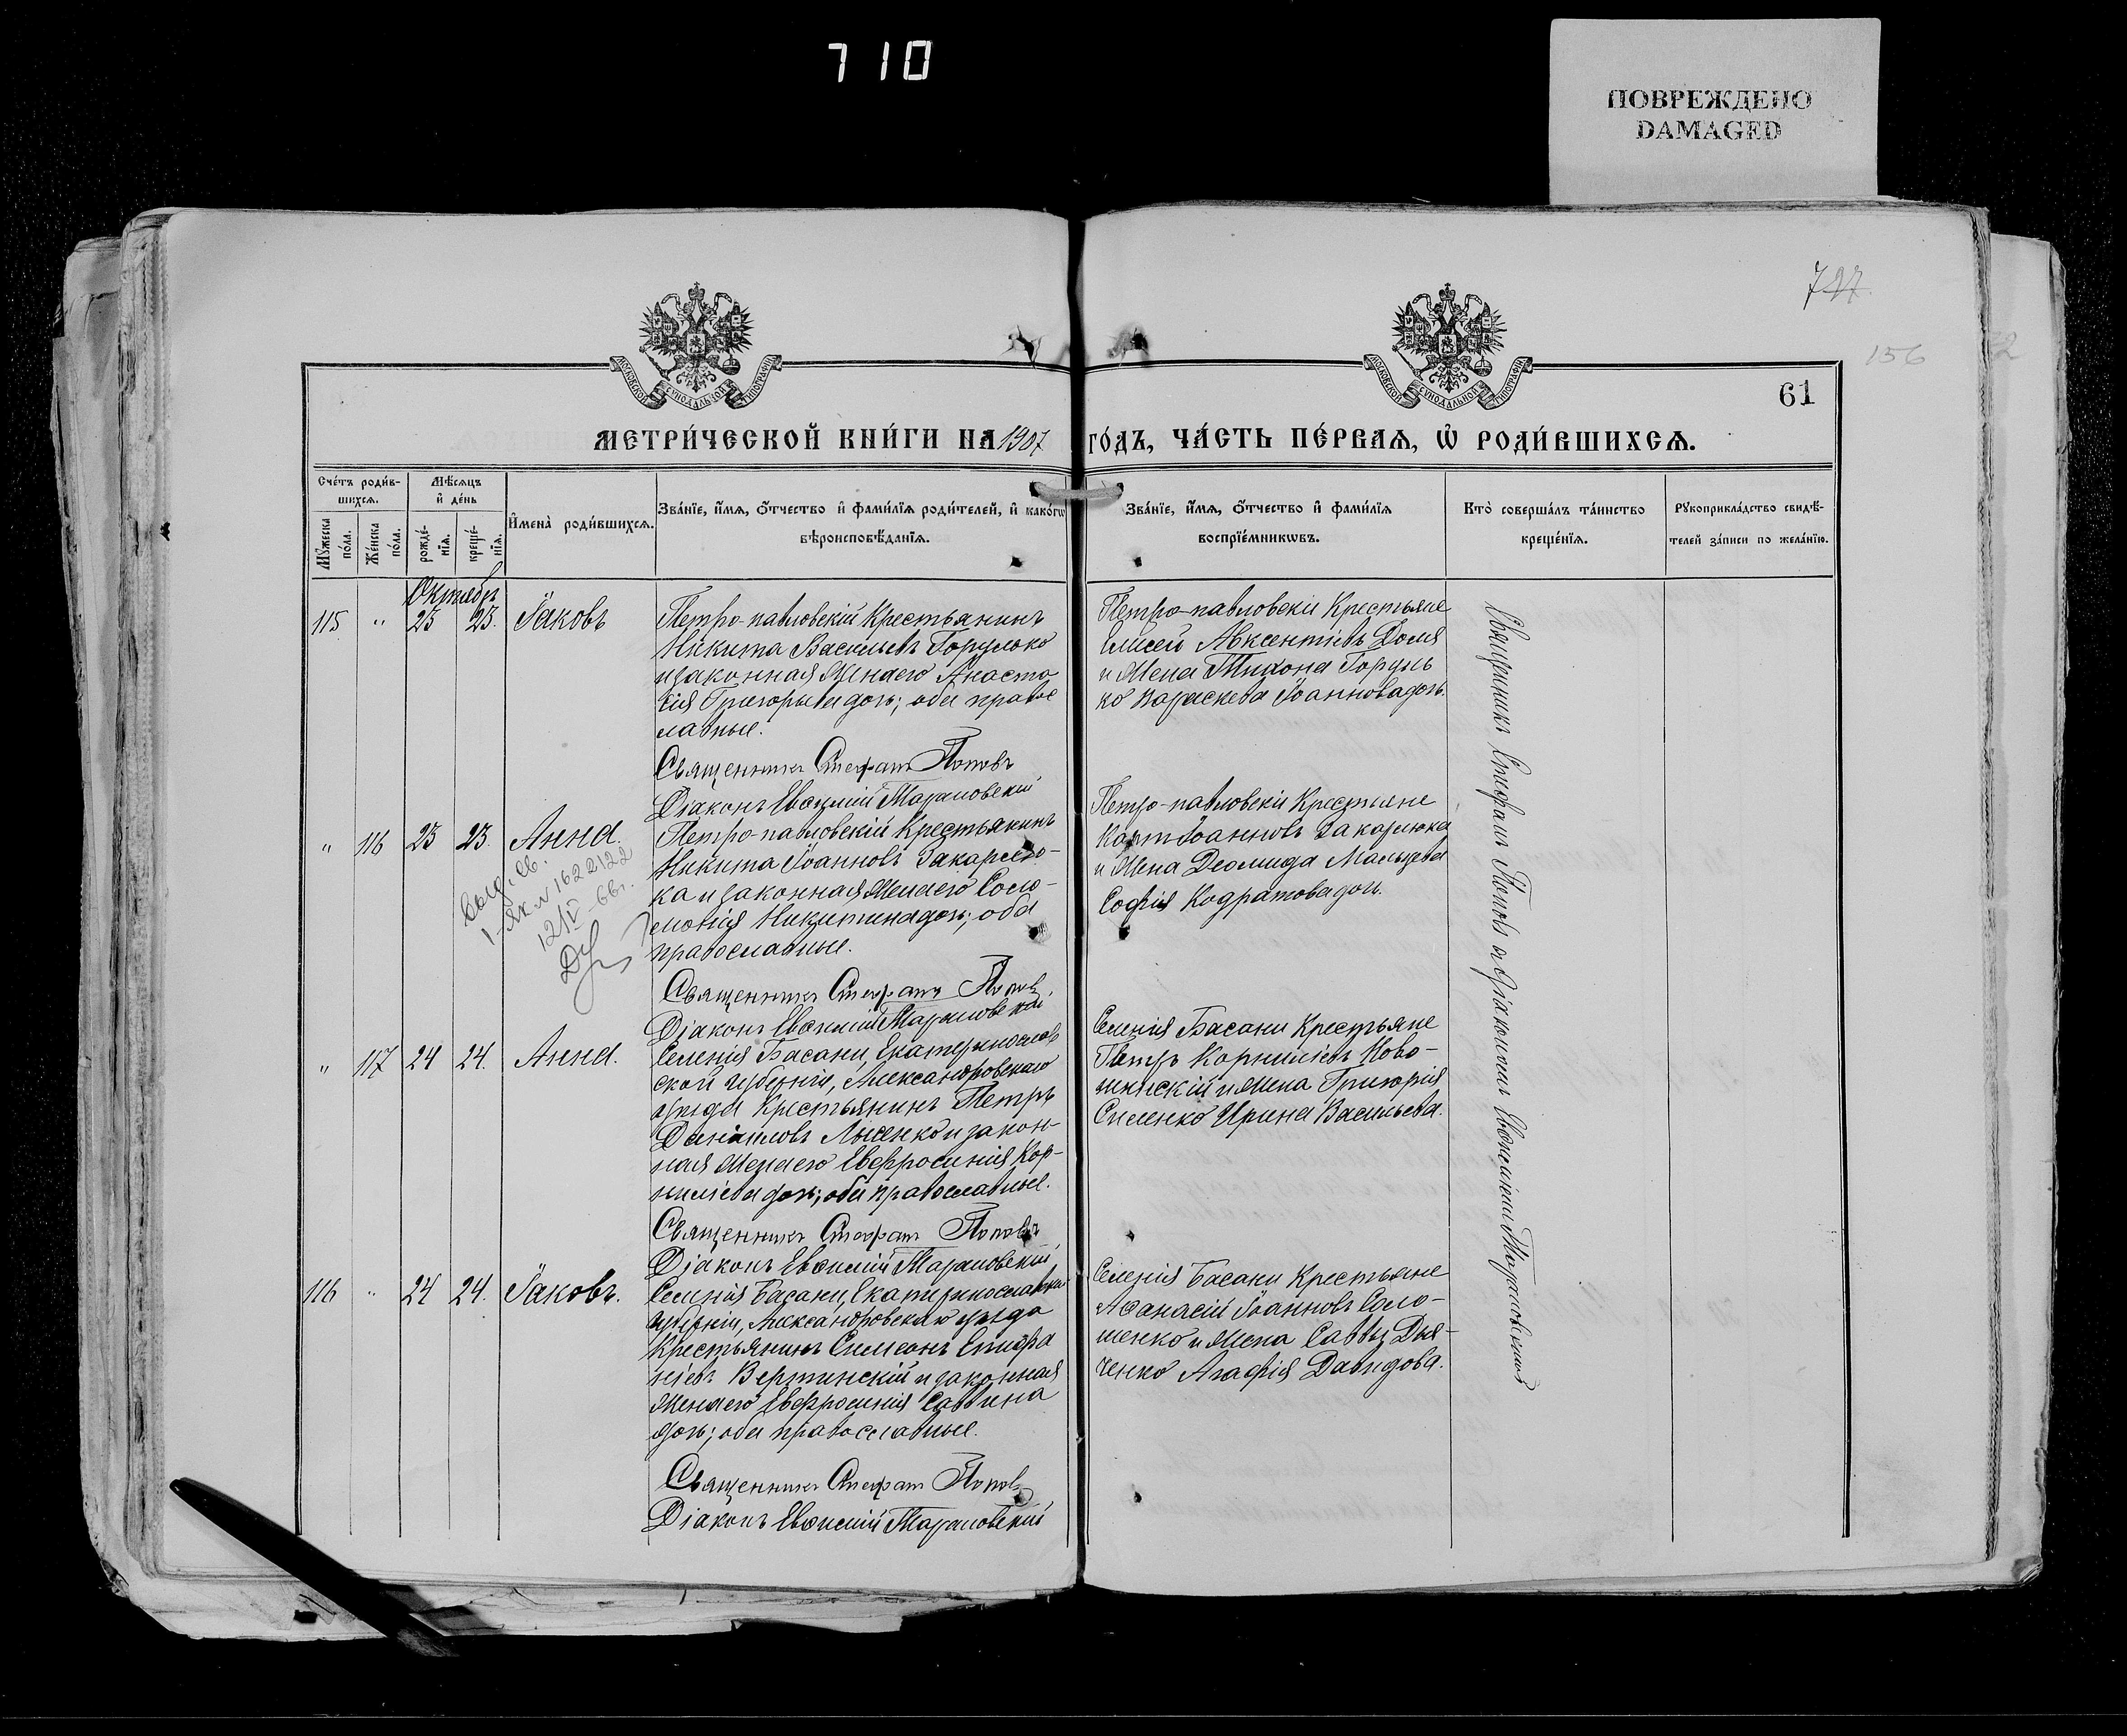 710
ПОВРЕЖДЕНО
DAMAGED
156
2
61
МОСКОВСКОЙ СУНОДАЛЬНОЙ ТИПОГРАФІИ
МОСКОВСКОЙ СУНОДАЛЬНОЙ ТИПОГРАФІИ
МЕТРИ́ЧЕСКОЙ КНИ́ГИ НА 1907 ГО́ДЪ, ЧА́СТЬ ПЕ́РВАѦ, Ѡ РОДИ́ВШИХСѦ.
Сче́тъ роди́в-
шихсѧ.
Мꙋ́жеска по́ла.
Же́нска по́ла.
Мѣ́сѧцъ
и҆ де́нь
рожде́-
нїѧ.
креще́-
нїѧ.
И҆мена̀ роди́вшихсѧ.
Зва́нїе, и҆́мѧ, ѻ҆́тчество и҆ фами́лїѧ роди́телей, и҆ како́гѡ
вѣроисповѣ́данїѧ.
Зва́нїе, и҆́мѧ, ѻ҆́тчество и҆ фами́лїѧ
воспрїе́мникѡвъ.
Кто̀ соверша́лъ та́инство
креще́нїѧ.
Рꙋкоприкла́дство свидѣ́-
телей за́писи по жела́нїю.
Октябрь
115 " 23 23. Іаковъ
Петро-павловскій Крестьянинъ
Никита Васильевъ Горулько
и законная жена его Анаста
сія Григорьева дочь; оба правос
лавные.
Священникъ Стефанъ Поповъ
Діаконъ Евѳимій Тарановскій
Петро-павловскіе Крестьяне
Елисей Авксентіевъ Доля
и жена Тихона Горуль
ко Параскева Іоаннова дочь.
" 116 23 23. Анна.
Петро-павловскій Крестьянинъ
Никита Іоанновъ Закарлю-
ка и законная жена его Соло-
монія Никитина дочь; оба
православные.
Священникъ Стефанъ Поповъ
Діаконъ Евѳимій Тарановскій
выд. св.
1-ЯК N 1622122
12/V 66г.
Петро-павловскіе Крестьяне
Іоанновъ Закарлюка
и жена Деомида Мальцева
Софія Кодратова дочь.
" 117 24 24. Анна.
Селенія Басани, Екатеринослав
ской губерніи, Александровскаго
уѣзда Крестьянинъ Петръ
Даніиловъ Лысенко и закон-
ная жена его Евфросинія Кор-
ниліева дочь; оба православные.
Священникъ Стефанъ Поповъ
Діаконъ Евѳимій Тарановскій
Селенія Басани Крестьяне
Петръ Корниліевъ Ново-
жинскій и жена Григорія
Силенко Ирина Васильева.
116 " 24 24. Іаковъ.
Селенія Басани, Екатеринославской
губерніи, Александровскаго уѣзда
Крестьянинъ Симеонъ Епифа
ніевъ Вертинскій и законная
жена его Евфросинія Саввина
дочь; оба православные.
Священникъ Стефанъ Поповъ
Діаконъ Евѳимій Тарановскій
Селенія Басани Крестьяне
Аѳанасій Іоанновъ Соло-
шенко и жена Саввы Дья-
ченко Агафія Давидова.
Священникъ Стефанъ Поповъ и Діакономъ Евѳиміемъ Тарановскимъ